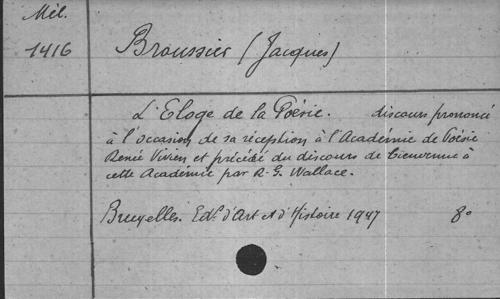 Mél.
1416
Broussier (Jacques)
L'Eloge de la Poésie. discours prononcé
à l'occasion de sa réception à l'Académie de Poésie
Renée Vivien et précédé du discours de bienvenue à
cette Académie par R. G. Wallace.
Bruxelles. Edt. d'Art et d'Histoire 1947 8°